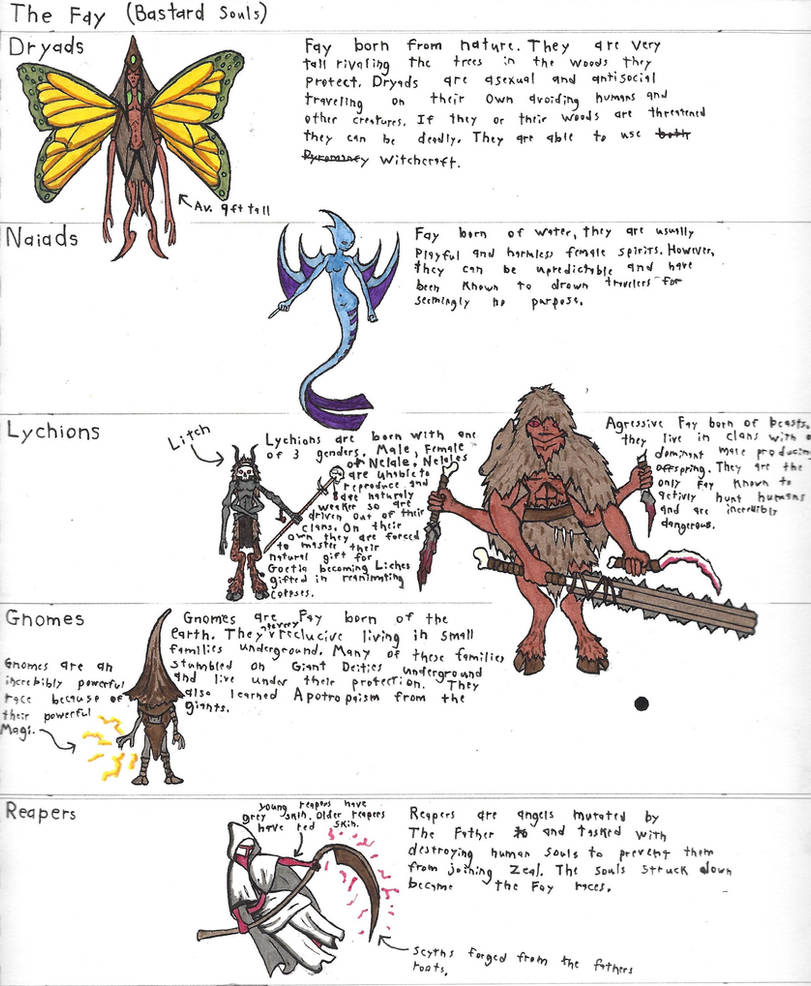 The Fay (Bastard Souls)
Dryads
Fay born from nature. They are very
tall rivaling the trees in the woods they
protect. Dryads are asexual and antisocial
traveling on their own avoiding humans and
other creatures. If they or their woods are threatened
they can be deadly. They are able to use both
Pyromancy Witchcraft.
Av. 9ft tall
Naiads
Fay born of water, they are usually
playful and harmless female spirits. However,
they can be upredictable and have
been known to drown travelers for
seemingly no purpose.
Lychions
Litch
Lychions are born with one
of 3 genders. Male, Female
or Nelale. Nelales
are unable to
reproduce and
are naturaly
weaker so are
driven out of their
clans. On their
own they are forced
to master their
natural gift for
Goetia becoming Liches
gifted in reanimating
corpses.
Agressive Fay born of beasts.
they live in clans with a
dominant male producing
offspring. They are the
only Fay known to
activly hunt humans
and are incredibly
dangerous.
Gnomes
Gnomes are Fay born of the
earth. They are very reclucive living in small
families underground. Many of these families
stumbled on Giant Deities underground
and live under their protection. They
also learned Apotropaism from the
giants.
Gnomes are an
increbibly powerful
race because of
their powerful
Magi.
Reapers
young reapers have
grey skin. Older reapers
have red skin.
Reapers are angels mutated by
The Father to and tasked with
destroying human souls to prevent them
from joining Zeal. The souls struck down
become the Fay races.
Scyths forged from the fathers
roots.